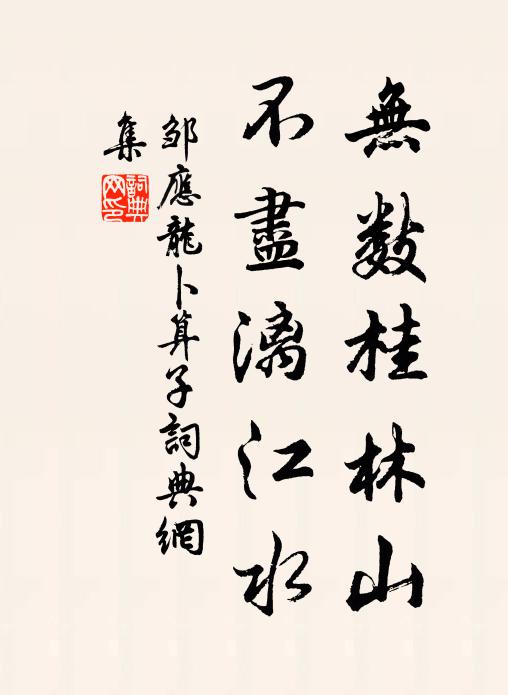 無數桂林山
不盡漓江水
鄒應龍卜算子詞典網
集
詞典
网印